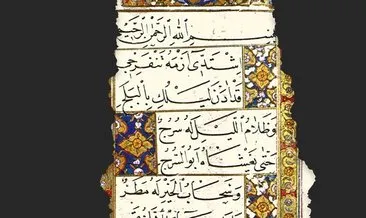 بسم الله الرحمن الرحيم
اشتدي أزمة تنفرجي
قد آذن ليلك بالبلج
وظلام الليل له سرج
حتى يغشاه أبو السرج
وسحاب الخير له مطر